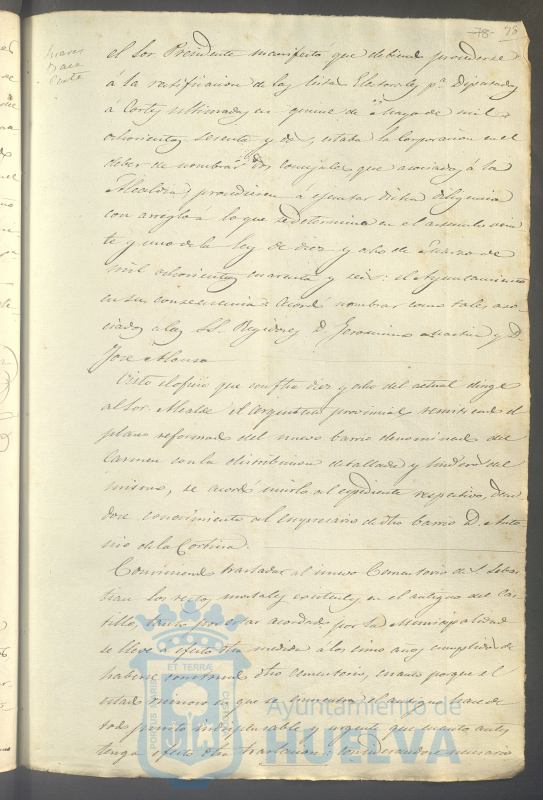 78 78
el Sor. Presidente manifestó que debiendo procederse
á la rectificacion de las listas Electorales pa. Diputados
á Cortes ultimadas en quince de Mayo de mil
ochocientos sesenta y dos, estaba la Corporacion en el
deber de nombrar dos concejales que asociados á la
Alcaldia procediesen á ejecutar dicha diligencia
con arreglo a lo que se determina en el articulo vein
te y uno de la ley de diez y ocho de de
mil ochocientos cuarenta y seis: el Ayuntamiento
en su consecuencia acordó nombrar como tales aso
ciados a los SS. Regidores D. Geronimo Martin y D.
José Alonso
Visto el oficio que con fha diez y ocho del actual dirige
al Sor. Alcalde el Arquitecto provincial remitiendo el
plano reformado del nuevo barrio denominado del
Carmen con la distribucion detallada y linderos del
mismo, se acordó unirlo al espediente respectivo, dan
dose conocimiento al empresario de dho barrio D. Anto
nio de la Cortina.
Conviniendo trasladar al nuevo Cementerio de S. Sebas
tian los restos mortales existentes en el antiguo del Cas
tillo, tanto por estar acordado por la Municipalidad
se lleve a efecto dha medida á los cinco años cumplidos de
haberse construido dho cementerio, cuanto porque el
estado ruinoso en que se encuentra el antiguo hace de
todo punto indispensable y urgente que cuanto antes
tenga efecto dha traslacion: considerandose necesario
ET TERRÆ
PORTUS MARIS
CUSTODIA
Ayuntamiento de
HUELVA